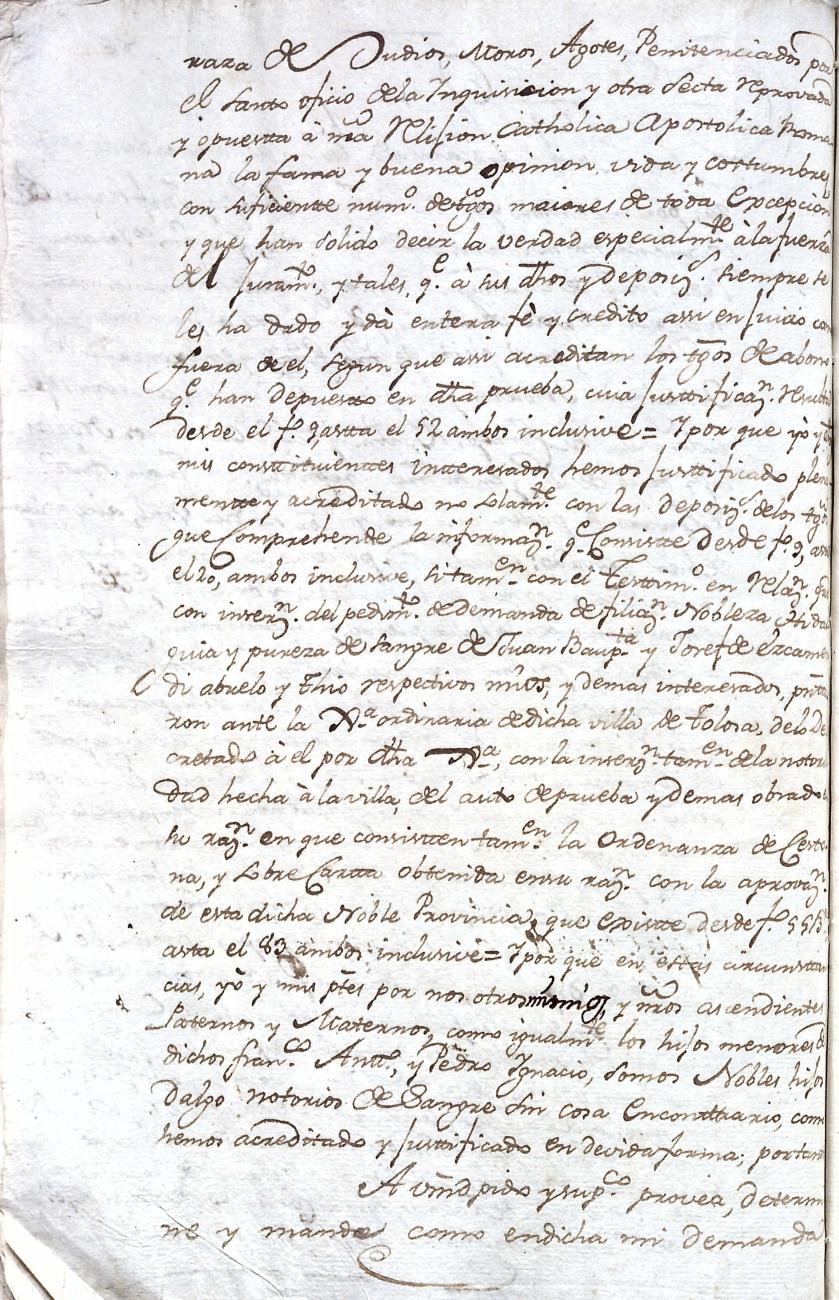 raza de Judios, Moros, Agotes, Penitenciados por
el Santo oficio dela Inquisicion y otra Secta reprovada
y opuestta à nrã Relision Catholica Apostolica Roma
na la fama y buena opinion, vida y costumbres
con suficientte num.º de tgõs maiores de toda Excepcion
y que han solido decir la verdad especialm.te à la fuerza
del juram.to, y tales, q.e à sus dhos y deposiz.s siempre se
les ha dado y dà entera fè y credito assi en juicio com
fuera de el, segun que assi acreditan los tgõs de abono
q.e han depuesto en dha prueba, cuia justtificaz.n result
desde el f.º 9 astta el 52 ambos inclusive = Y por que yò y
mis consttituienttes intteresados hemos justtificado plena
mentte y acreditado no solam.te con las deposiz.s de los tgõs
que Comprehende la informaz.n q.e Consistte desde f.º 9, astt
el 20, ambos inclusive, si tam.en con el Testtim.º en Relaz.n que
con inserz.n del pedim.to de demanda de filiaz.n Nobleza Hidal
guia y pureza de sangre de Juan Baup.ta y Josef de Ezcamen
di abuelo y thio respectivos mios, y demas interesados,
ron ante la Jũ.a ordinaria de dicha villa de Tolosa, delo De
cretado à el por dha Jũ.a, con la inserz.n tam.en de la notori
dad hecha à la villa, del auto de prueba y demas obrado
su raz.n en que consistten tam.en la Ordenanza de Cestt
na, y Sobre Cartta obtenida en su raz.n con la aprovaz.n
de esta dicha Noble Provincia, que existte desde f.º 55
asta el 83 ambos inclusive = Y por que en estas circunsttan
cias, yò y mis ptes por nos otros mismos, y nrõs ascendientes
Paternos y Maternos, como igualm.te los hijos menores
dichos Fran.co Antt.º, y Pedro Ignacio, somos Nobles hijos
dalgo notorios de Sangre sin cosa Enconttrario, como
hemos acreditado y justtificado en devida forma; portan
A vmd pido y sup.co provea, determi
ne y mande como en dicha mi demanda